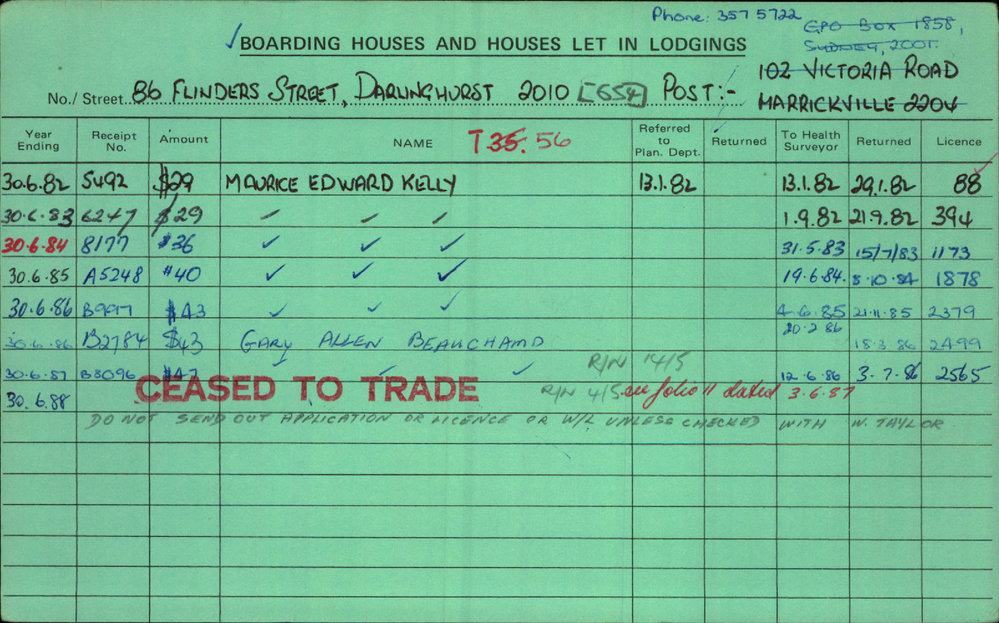 Phone: 357 5722
GPO BOX 1858,
SYDNEY, 2001.
BOARDING HOUSES AND HOUSES LET IN LODGINGS
102 VICTORIA ROAD
No./ Street 86 FLINDERS STREET, DARLINGHURST 2010 [654] POST:-
MARRICKVILLE 2204
Year Ending Receipt No. Amount NAME T 35. 56 Referred to Plan. Dept. Returned To Health Surveyor Returned Licence
30.6.82 5492 $29 MAURICE EDWARD KELLY 13.1.82 13.1.82 29.1.82 88
30.6.83 6247 $29 1.9.82 21.9.82 394
30.6.84 8177 $36 ✓ ✓ ✓ 31.5.83 15/7/83 1173
30.6.85 A5248 $40 ✓ ✓ ✓ 19.6.84. 8.10.84 1878
30.6.86 B997 $43 ✓ ✓ ✓ 4.6.85 21.11.85 2379
20.2.86
30.6.86 B2784 $43 GARY ALLEN BEAUCHAMP 18.3.86 2499
R/N 14/5
30.6.87 B8096 $47 ✓ ✓ ✓ 12.6.86 3.7.86 2565
CEASED TO TRADE
30.6.88 R/N 4/5 see folio 11 dated 3.6.87
DO NOT SEND OUT APPLICATION OR LICENCE OR W/L UNLESS CHECKED WITH W. TAYLOR